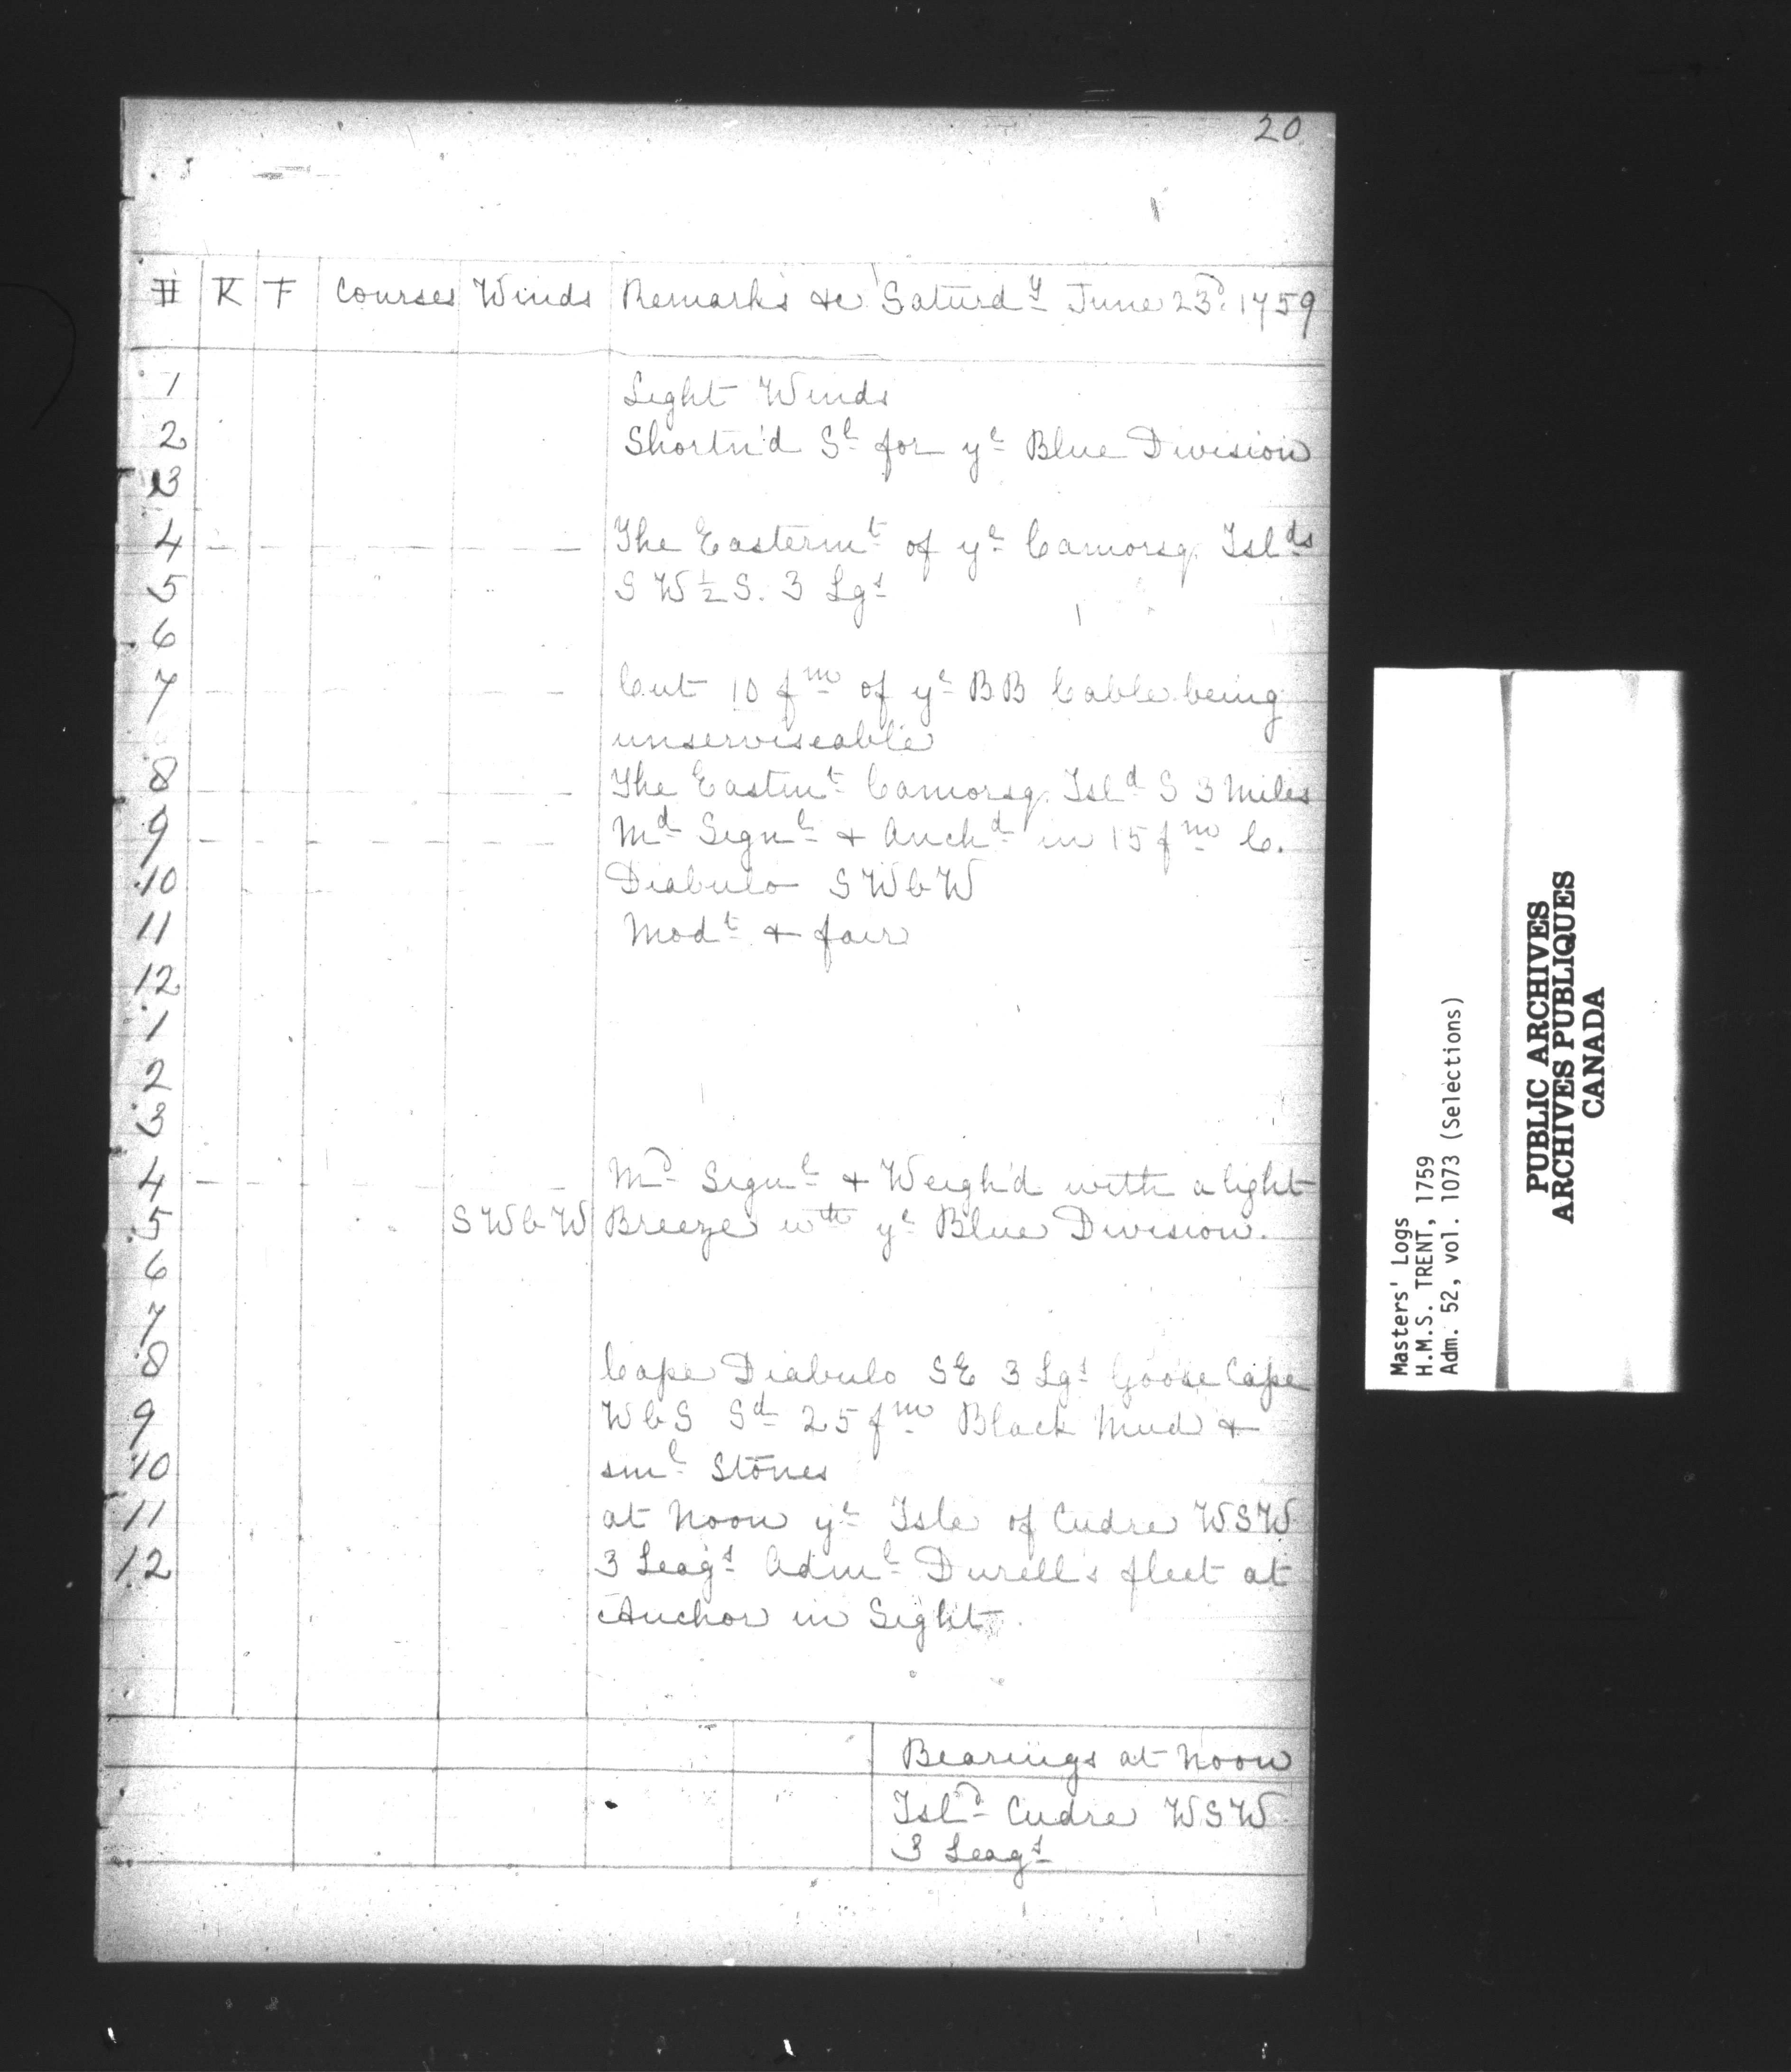 20
H K F Courses Winds Remarks &c Saturdy June 23d. 1759
1 Light Winds
2 Shortn'd Sl for ye Blue Division
3
4 The Easternt of ye Camorsq. Islds
5 S W ½ S. 3 Lgs
6
7 Cut 10 fm of ye BB Cable being
unserviseable
8 The Eastmt Camorsq. Isld S 3 Miles
9 Md Signl & Anchd in 15 fm C.
10 Diabulo SWbW
11 Modt & fair
12
1
2
3
4 Md Signl & Weigh'd with a light
5 SWbW Breeze wth ye Blue Division.
6
7
8 Cape Diabulo SE 3 Lgs Goose Cape
9 WbS Sd 25 fm Black Mud &
10 sml Stones
11 at Noon ye Isle of Cudre WSW
12 3 Leags Adml Durell's fleet at
Anchor in Sight.
Bearings at Noon
Isld Cudre WSW
3 Leags
Masters' Logs
H.M.S. TRENT, 1759
Adm. 52, vol. 1073 (Selections)
PUBLIC ARCHIVES
ARCHIVES PUBLIQUES
CANADA